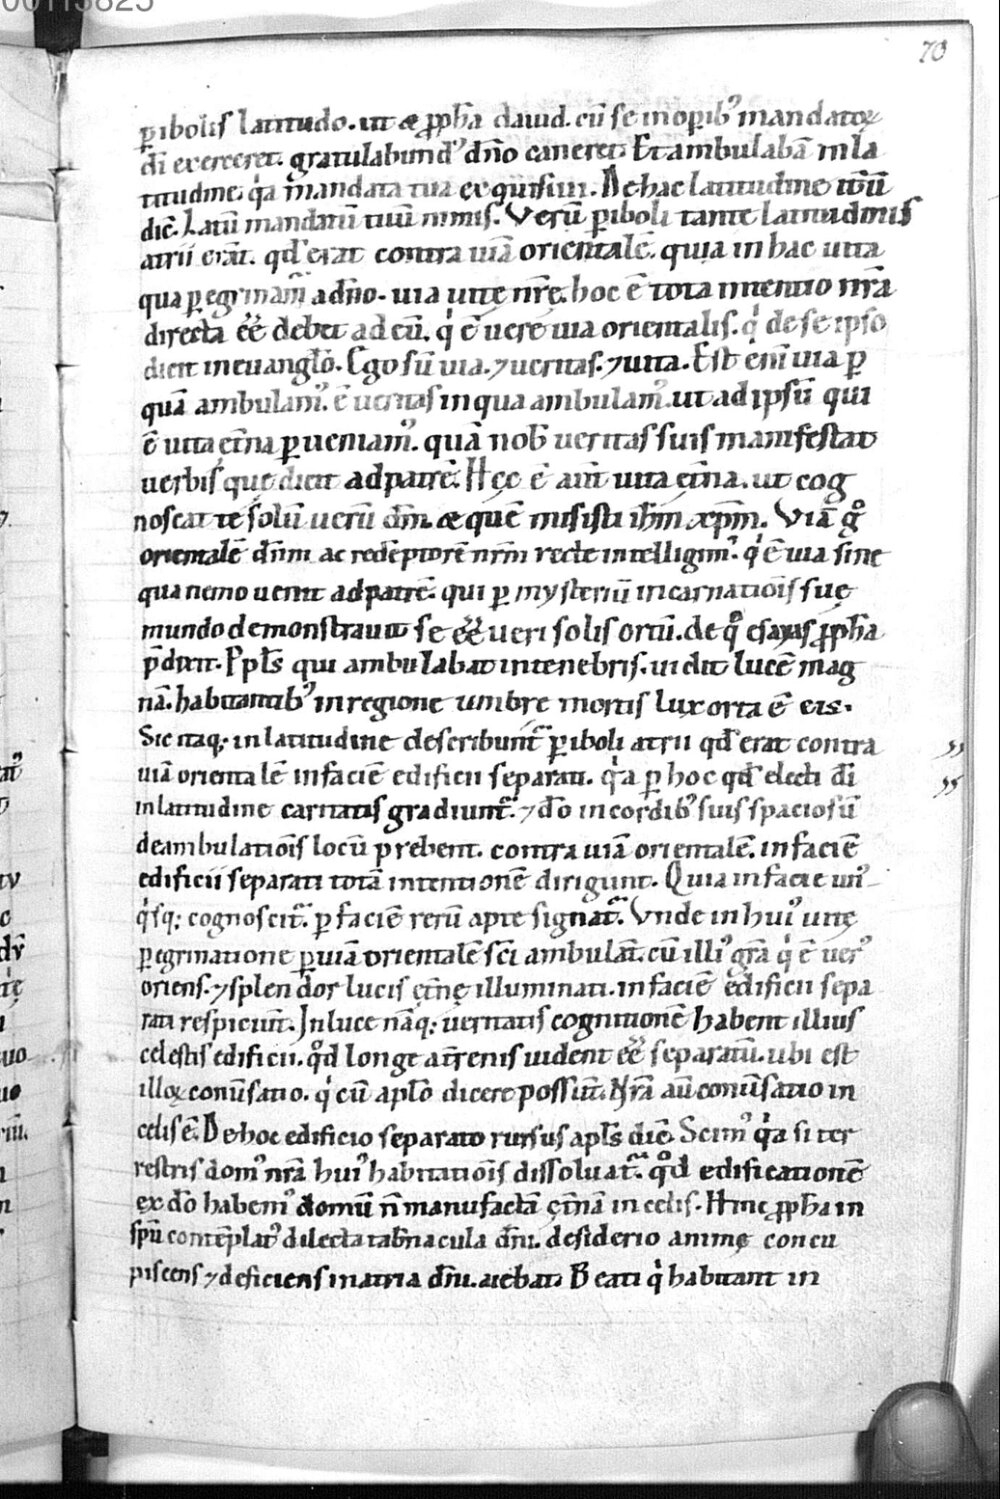 00113825
70
ꝑibolis latitudo. ut & ꝓph̄a dauid. cū se in oꝑib᾽ mandatoꝝ
dī exerceret. gratulabund᾽ dn̄o caneret. Et ambulabā in la
titudine. q̇a mandata tua exquisiui. De hac latitudine iteꝝ
dic̄. Latū mandatū tuū nimis. Verū ꝑiboli tante latitudinis
atrii erāt. qd᾽ erat contra uiā orientalē. quia in hac uita
qua ꝑegrinam᾽ a dn̄o. uia uitę nr̄ę. hoc ē tota intentio nr̄a
directa eē debet ad eū. q̇ ē uere uia orientalis. q̇ de se ipso
dicit in euangl̄o. Ego sū uia. ⁊ ueritas. ⁊ uita. Est enī uia ꝑ
quā ambulam᾽. ē ueritas in qua ambulam᾽. ut ad ipsū qui
ē uita ęt̄na ꝑueniam᾽. quā nob̄ ueritas suis manifestat
uerbis quę dicit ad patrē. Hęc ē aut̄ uita ęt̄na. ut cog
noscat te solū uerū dm̄. & quē misisti ih̄m xp̄m. Viā g̊
orientalē dn̄m ac redēptorē nr̄m recte intelligim᾽. q̇ ē uia sine
qua nemo uenit ad patrē. qui ꝑ mysteriū incarnatiōis suę
mundo demonstrauit se eē ueri solis ortū. de q̊ esayas ꝓph̄a
p̄dixit. Ppl̄s qui ambulabat in tenebris. uidit lucē mag
nā. habitantib᾽ in regione umbre mortis lux orta ē eis.
Sic itaq; in latitudine describunt᾽ ꝑiboli atrii qd᾽ erat contra
uiā orientalē in faciē edificii separati. q̇a ꝑ hoc qd᾽ electi dī
in latitudine caritatis gradiunt᾽. ⁊ dō in cordib᾽ suis spaciosū
deambulatiōis locū prebent. contra uiā orientalē. in faciē
edificii separati totā intentionē dirigunt. Quia in facie un᾽
q̇sq; cognoscit᾽. ꝑ faciē rerū apte signat᾽. Vnde in hui᾽ uitę
ꝑegrinatione ꝑ uiā orientalē sc̄i ambulāt. cū illi᾽ gr̄a q̇ ē uer᾽
oriens. ⁊ splendor lucis ęt̄nę illuminati. in faciē edificii sepa
rati respiciunt. In luce nāq; ueritatis cognitionē habent illius
celestis edificii. qd̊ longe a tr̄enis uident eē separatū. ubi est
illoꝝ conūsatio. q̇ cū apl̄o dicere possunt. Nr̄a aū conūsatio in
celis ē. De hoc edificio separato rursus apl̄s dic̄. Scim᾽ q̇a si ter
restris dom᾽ nr̄a hui᾽ habitatiōis dissoluat᾽. qd̊ edificationē
ex dō habem᾽ domū n̄ manufactā ęt̄nā in celis. Hinc ꝓph̄a in
spū contēplat᾽ dilecta tab̄nacula dn̄i. desiderio animę concu
piscens ⁊ deficiens in atria dn̄i. aiebat. Beati q̇ habitant in